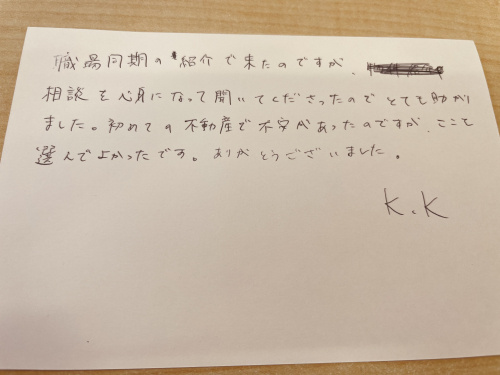 職場同期の紹介で来たのですが、
相談を心身になって聞いてくださったのでとても助かり
ました。初めての不動産で不安があったのですが、ここを
選んでよかったです。ありがとうございました。
K.K